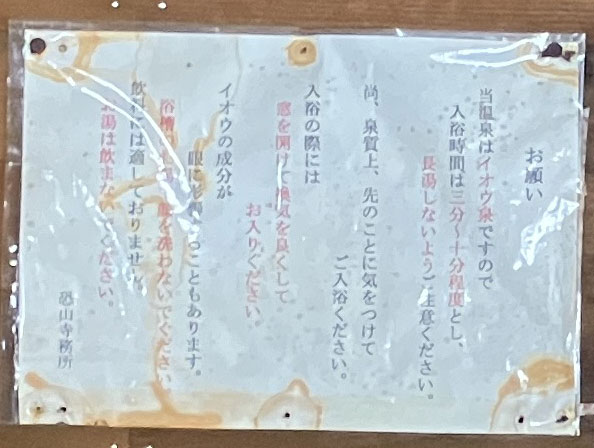 お願い
当温泉はイオウ泉ですので
入浴時間は三分〜十分程度とし、
長湯しないようご注意ください。
尚、泉質上、先のことに気をつけて
ご入浴ください。
入浴の際には
窓を開けて換気を良くして
お入りください。
イオウの成分が
眼に こともあります。
浴槽 顔を洗わないでください
飲料には適しておりません。
お湯は飲まないでください。
恐山寺務所